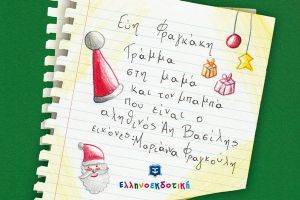 Εύη Φραγκάκη
Γράμμα
στη μαμά
και τον μπαμπά
που είναι ο
αληθινός Αη Βασίλης
εικόνες: Μαριάνα Φραγκούλη
ελληνοεκδοτική